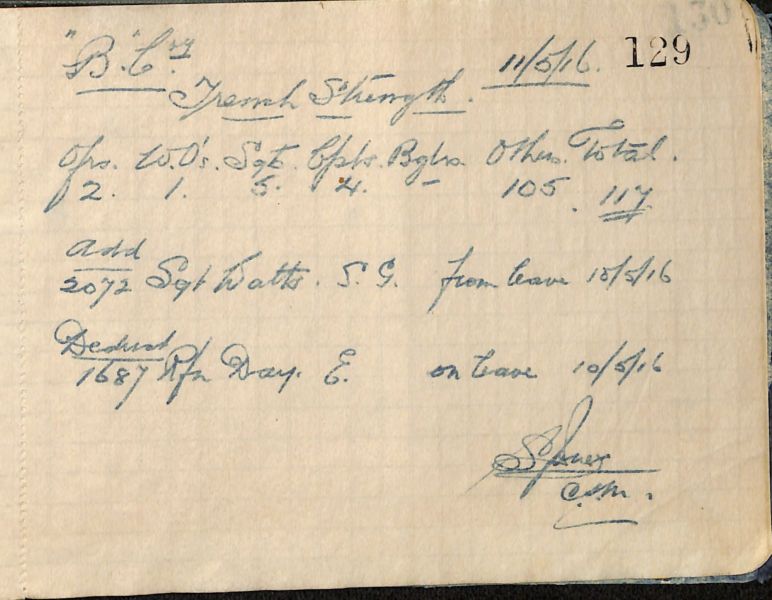 "B" Coy. 11/5/16. 129
Trench Strength.
Ofrs. W.O's. Sgts. Cpls. Bglrs. Others. Total.
2. 1. 5. 4. – 105. 117
Add
2072 Sgt Watts. S. G. from leave 10/5/16
Deduct
1687 Rfn Day. E. on leave 10/5/16
C.S.M.